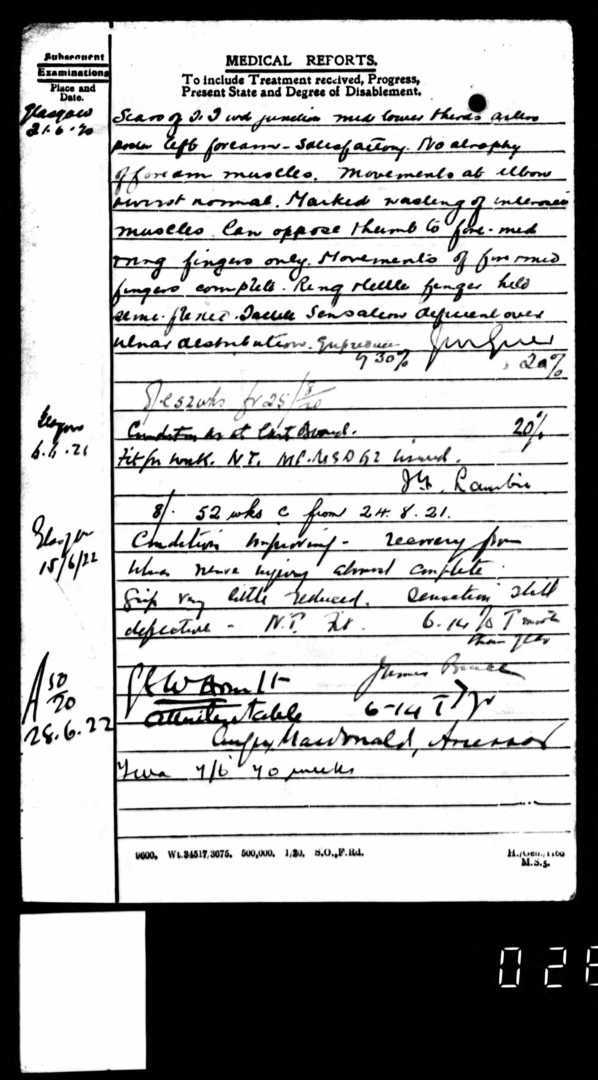 Subsequent
Examinations
Place and
Date.
MEDICAL REPORTS.
To include Treatment received, Progress,
Present State and Degree of Disablement.
Glasgow
21.6.20
Scars of junction mid lower thirds
left forearm - Satisfactory. No atrophy
of forearm muscles. Movements at elbow
wrist normal. Marked wasting of interossei
muscles. Can oppose thumb to fore - mid
ring fingers only. Movements of fore mid
fingers complete. Ring little finger held
semi-flexed. Tactile Sensation deficient over
ulnar distribution.
30% 20%
52 wks fr 25/8/20
Glasgow
6.6.21
Condition as at last Board. 20%
Fit for work. N.T. issued.
8/- 52 wks c from 24.8.21.
Glasgow
15/6/22
Condition improving - recovery from
ulnar nerve injury almost complete.
Grip very little reduced. Sensation still
defective - N.T. Fit. 6-14% T
than year
James
A 50/20
28.6.22
GSW Arm Lt
Attributable 6-14 T > yr
Macdonald, Assessor
7/6 70 weeks
9600. Wt.34517/3675. 500,000. 1/20. S.O.,F.Rd.
M.S.5.
028